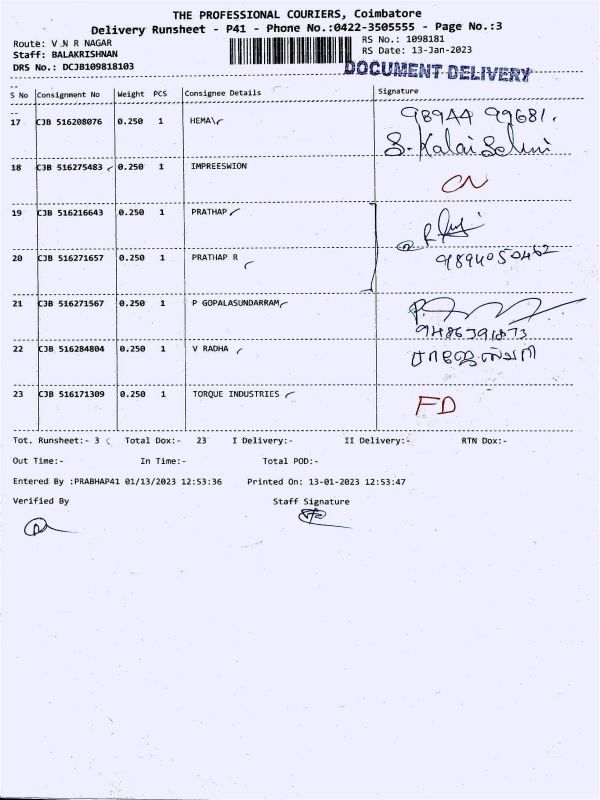 THE PROFESSIONAL COURIERS, Coimbatore
Delivery Runsheet - P41 - Phone No.:0422-3505555 - Page No.:3
Route: V N R NAGAR RS No.: 1098181
Staff: BALAKRISHNAN RS Date: 13-Jan-2023
DRS No.: DCJB109818103 DOCUMENT DELIVERY
S No Consignment No Weight PCS Consignee Details Signature
17 CJB 516208076 0.250 1 HEMA 98944 99681.
S. Kalai Selvi
18 CJB 516275483 0.250 1 IMPREESWION
CN
19 CJB 516216643 0.250 1 PRATHAP
20 CJB 516271657 0.250 1 PRATHAP R 9894050462
21 CJB 516271567 0.250 1 P GOPALASUNDARRAM
9486391873
22 CJB 516284804 0.250 1 V RADHA ராஜேஸ்வரி
23 CJB 516171309 0.250 1 TORQUE INDUSTRIES FD
Tot. Runsheet:- 3 Total Dox:- 23 I Delivery:- II Delivery:- RTN Dox:-
Out Time:- In Time:- Total POD:-
Entered By :PRABHAP41 01/13/2023 12:53:36 Printed On: 13-01-2023 12:53:47
Verified By Staff Signature